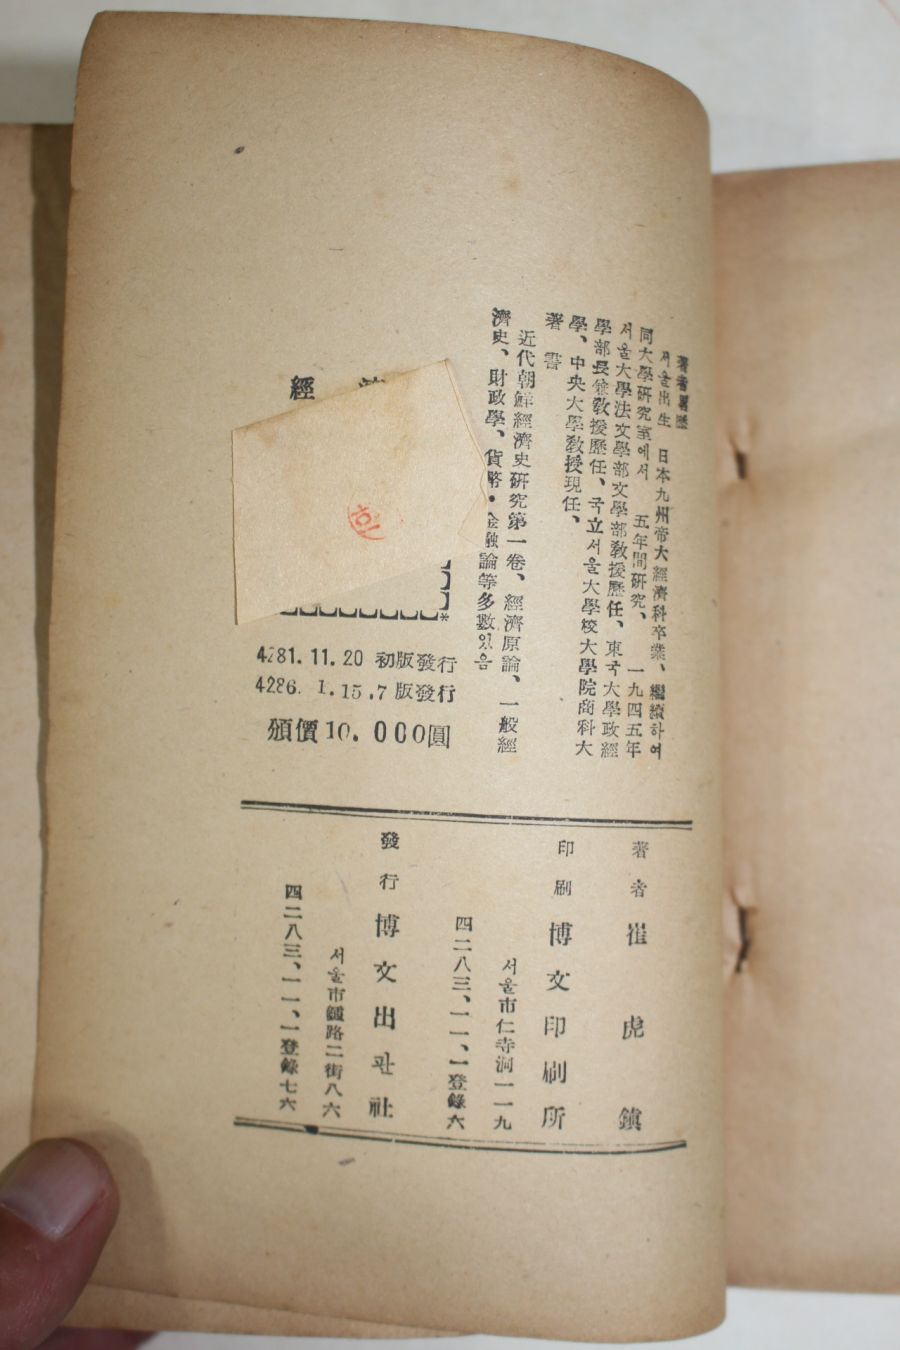 著者畧歷
서울出生 日本九州帝大經濟科卒業、繼續하여
同大學硏究室에서 五年間硏究、 一九四五年
서울大學法文學部文學部敎授歷任、東국大學政經
學部長兼敎授歷任、국立서울大學校大學院商科大
學、中央大學敎授現任、
著書
近代朝鮮經濟史硏究第一卷、經濟原論、一般經
濟史、財政學、貨幣・金融論等多數있음
經
4281.11.20 初版發行
4286. 1.15.7版發行
頒價10.000圓
著者 崔虎鎭
印刷 博文印刷所
서울市仁寺洞一一九
四二八三、一一、一登錄六
發行 博文出판社
서울市鍾路二街八六
四二八三、一一、一登錄七六